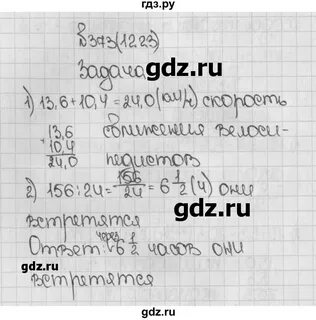 гдз.ру
№373(1223)
Задача
gdz.ru
1) 13,6+10,4=24,0(км/ч) скорость
13,6
+10,4
24,0
сближения велоси-
педистов
gdz.ru
2) 156:24=156/24=6 1/2 (ч) они
встретятся
gdz.ru
Ответ: через 6 1/2 часов они
встретятся
gdz.ru